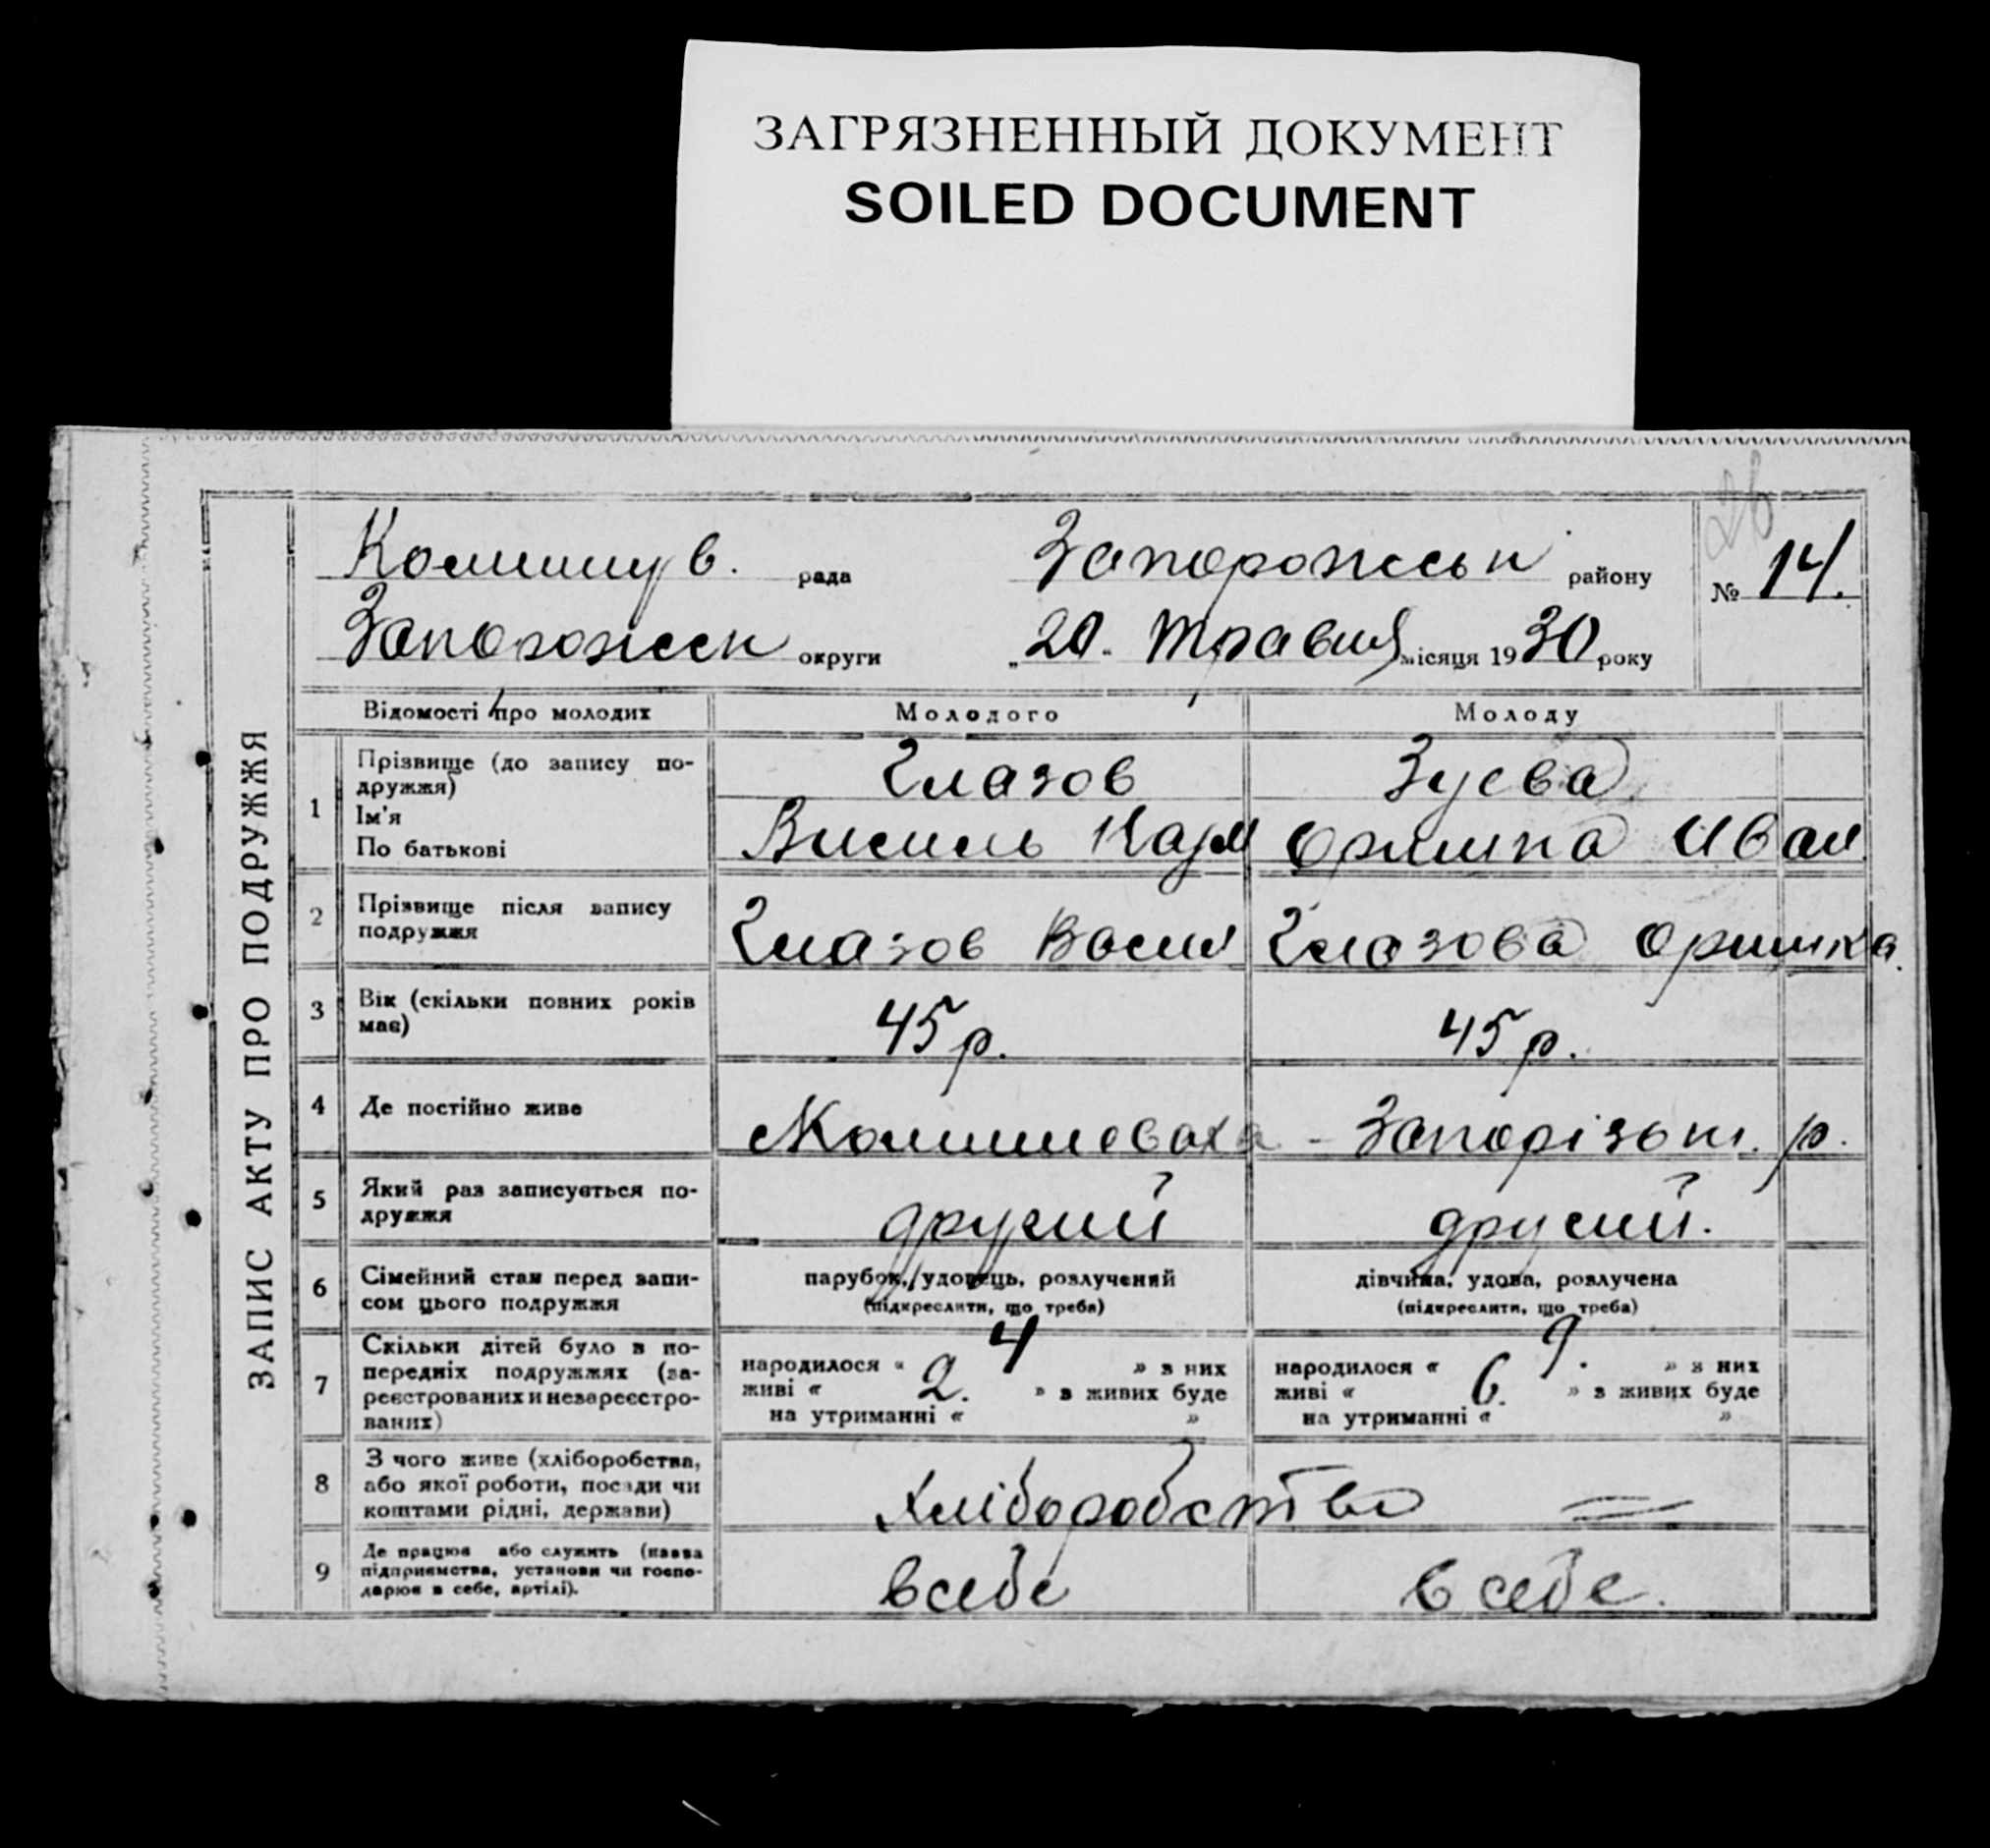 ЗАГРЯЗНЕННЫЙ ДОКУМЕНТ
SOILED DOCUMENT
26
Комишув. рада Запорожськ району № 14.
Запорожськ округи „20. травня місяця 1930 року
ЗАПИС АКТУ ПРО ПОДРУЖЖЯ
Відомості про молодих Молодого Молоду
1 Прізвище (до запису по-
дружжя) Глазов Зуєва
Ім'я
По батькові Василь Оришка Иван
2 Прізвище після запису
подружжя Глазов Васил Глазова Оришка.
3 Вік (скільки повних років
має) 45 р. 45 р.
4 Де постійно живе Комишеваха - Запорізьк. р.
5 Який раз записується по-
дружжя другий другий.
6 Сімейний стан перед запи-
сом цього подружжя парубок, удовець, розлучений дівчина, удова, розлучена
(підкреслити, що треба) (підкреслити, що треба)
7 Скільки дітей було в по-
передніх подружжях (за-
реєстрованих и незареєстро-
ваних)
народилося « 4 » з них народилося « 9. » з них
живі « 2. » з живих буде живі « 6. » з живих буде
на утриманні « » на утриманні « »
8 З чого живе (хліборобства,
або якої роботи, посади чи
коштами рідні, держави) Хліборобство =
9 Де працює або служить (назва
підприємства, установи чи госпо-
дарює в себе, артілі). в себе в себе.